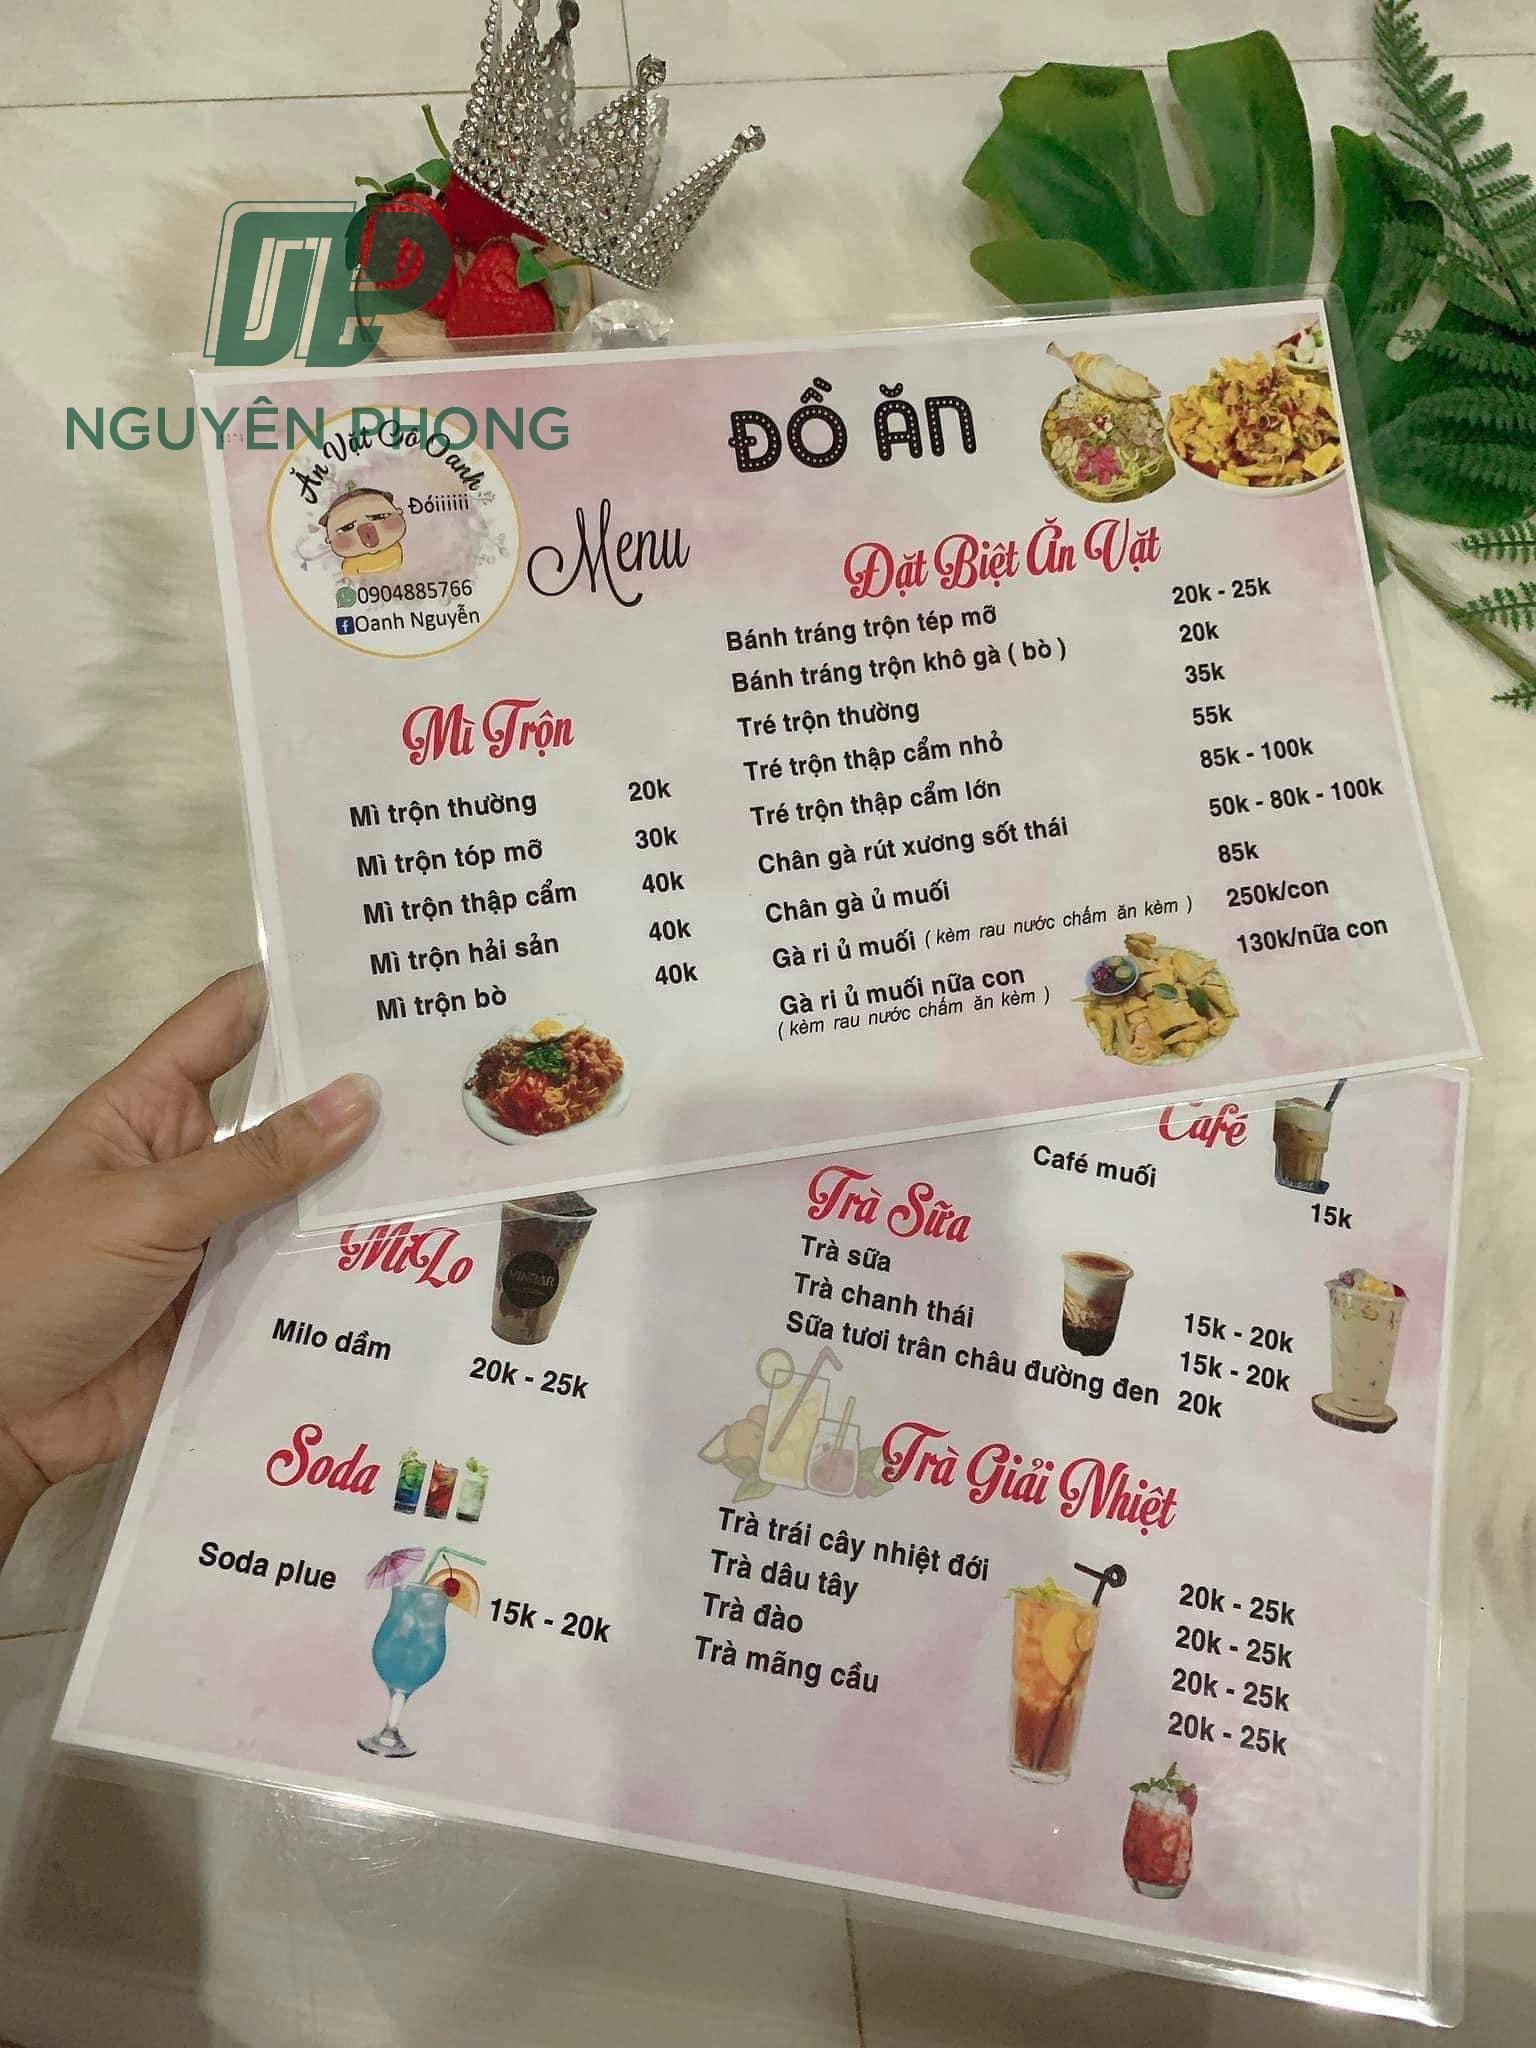 NGUYÊN PHONG
Ăn Vặt Cô Oanh
Đóiiiiii
0904885766
Oanh Nguyễn
Menu
ĐỒ ĂN
Mì Trộn
Mì trộn thường 20k
Mì trộn tóp mỡ 30k
Mì trộn thập cẩm 40k
Mì trộn hải sản 40k
Mì trộn bò 40k
Đặt Biệt Ăn Vặt
Bánh tráng trộn tép mỡ 20k - 25k
Bánh tráng trộn khô gà ( bò ) 20k
Tré trộn thường 35k
Tré trộn thập cẩm nhỏ 55k
Tré trộn thập cẩm lớn 85k - 100k
Chân gà rút xương sốt thái 50k - 80k - 100k
Chân gà ủ muối 85k
Gà ri ủ muối ( kèm rau nước chấm ăn kèm ) 250k/con
Gà ri ủ muối nữa con 130k/nữa con
( kèm rau nước chấm ăn kèm )
MiLo
Milo dầm 20k - 25k
Soda
Soda plue 15k - 20k
Café
Café muối 15k
Trà Sữa
Trà sữa 15k - 20k
Trà chanh thái 15k - 20k
Sữa tươi trân châu đường đen 20k
Trà Giải Nhiệt
Trà trái cây nhiệt đới 20k - 25k
Trà dâu tây 20k - 25k
Trà đào 20k - 25k
Trà mãng cầu 20k - 25k